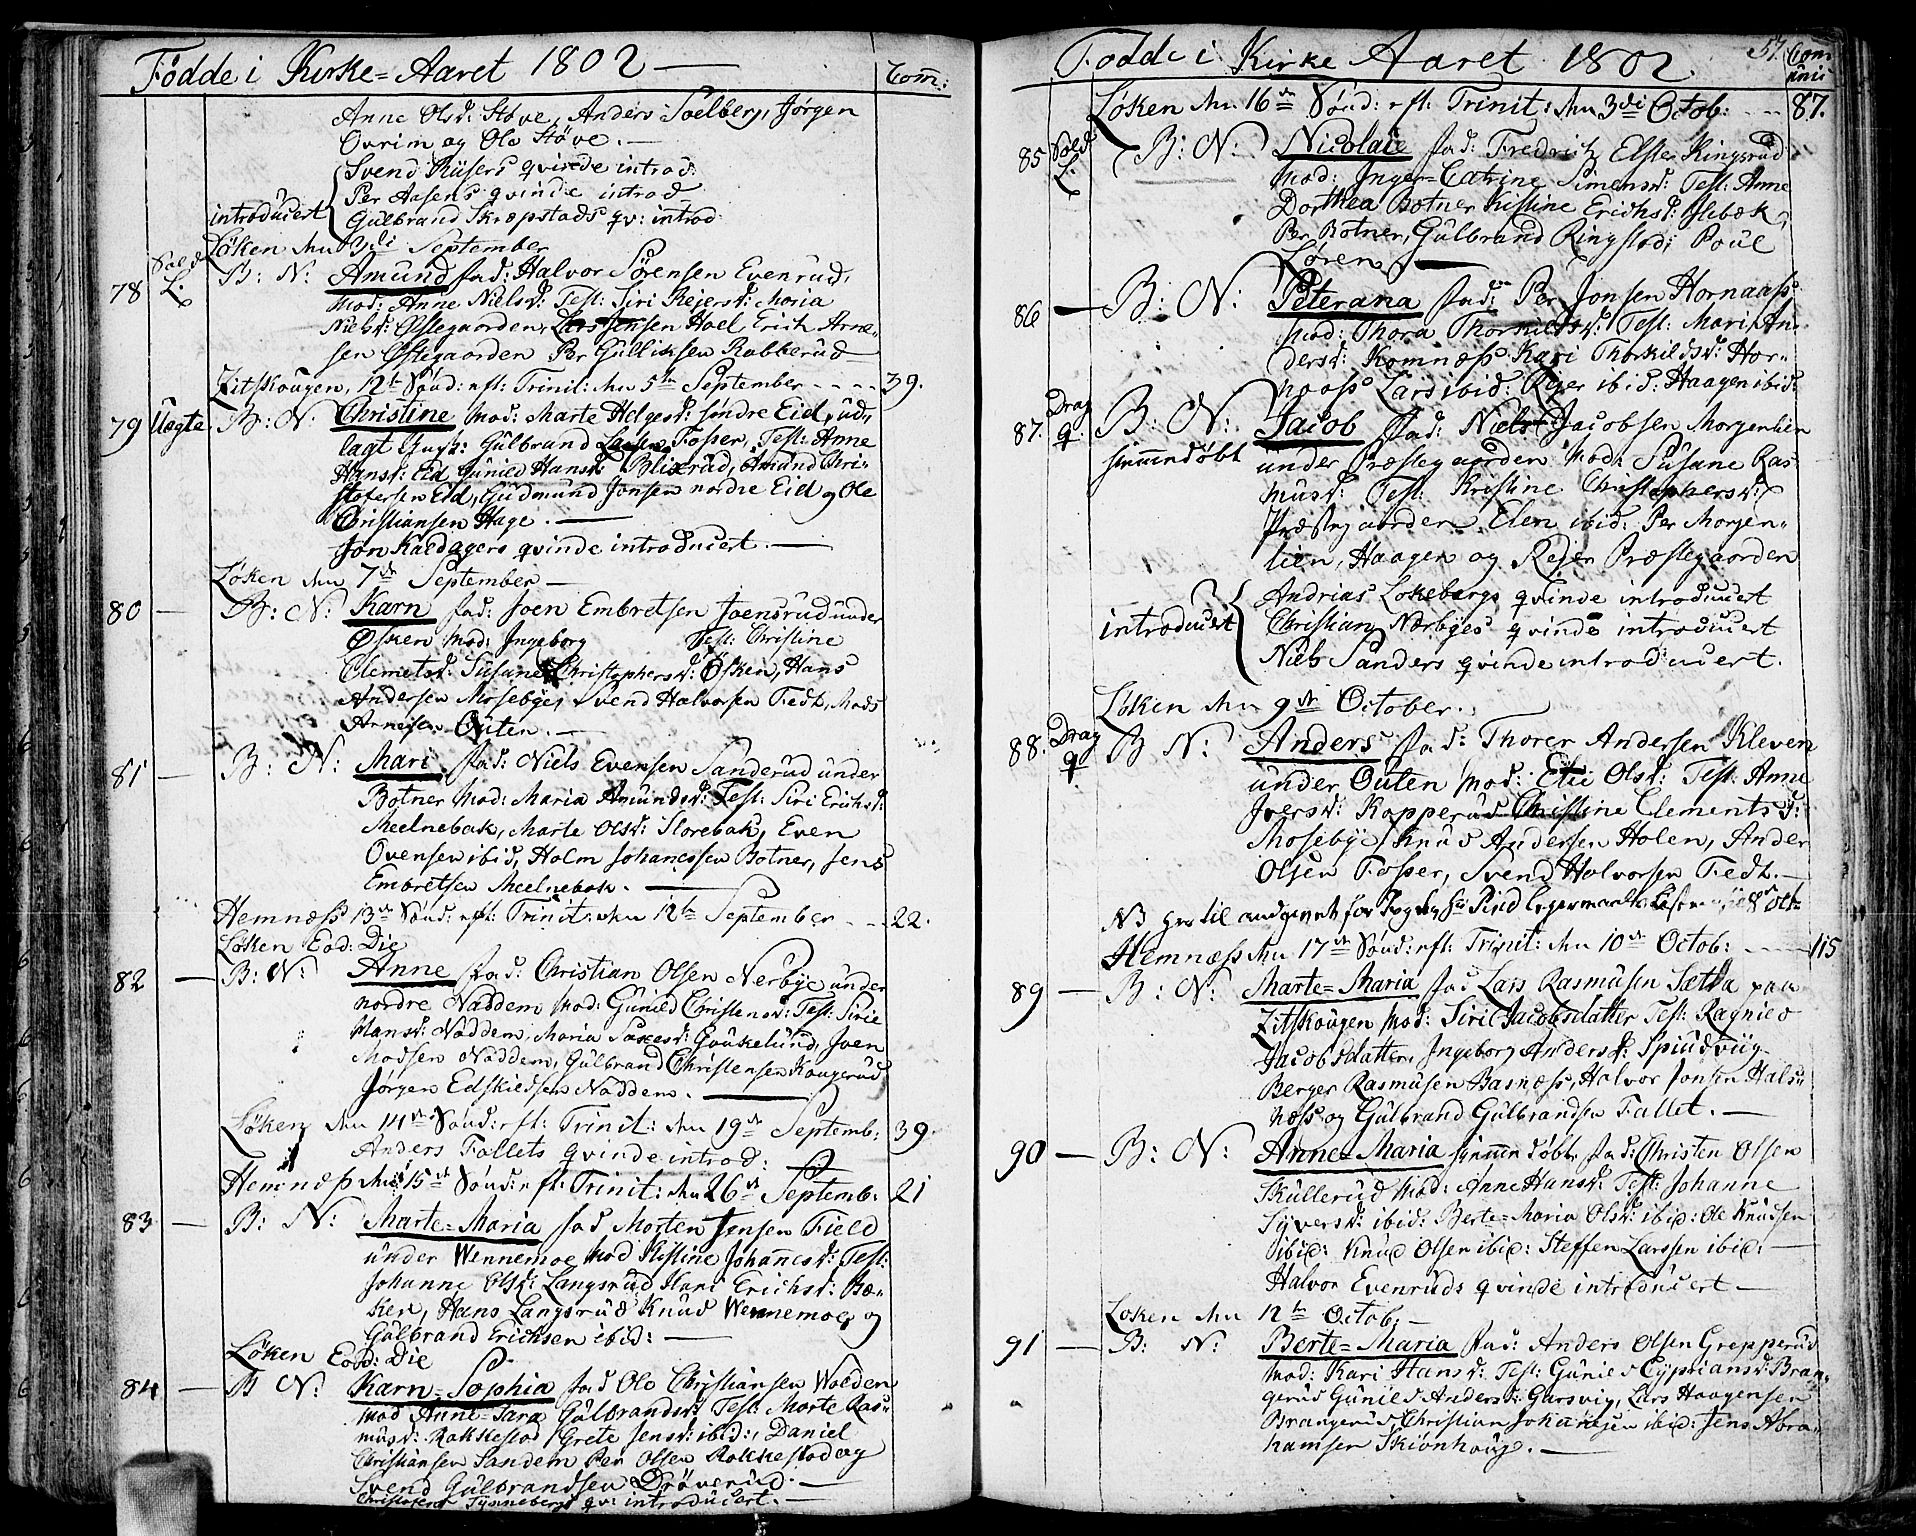 Födde i Kirke=Aaret 1802 —
Com̄:
Anne Olsd: Støve, Anders Soelberg, Jørgen
Ovrim og Ole Støve. —
Svend Küsers qvinde introd:
Per Aasens qvinde introd
introducert Gülbrand Skræpstads qv: introd
Løken den 3di September
78 Sold L. B: N: Amünd fad: Halvor Sørensen Evenrüd,
mod: Anne Nielsd: Test: Siri Rejersd: Maria
Nielsd: Østegaarden, Lars Jensen Hoel, Erich Arne=
sen Østegaarden Per Gülliksen Rabberüd
Zitskougen, 12te Sönd: eft: Trinit: den 5te September - - - - 39.
79 Uægte B: N: Christine mod: Marte Helgesd: søndre Eid, ud,
lagt Ungk: Gülbrand Larsen Fosser, Test: Anne
Hansd: Eid, Günild Hansd: Blixrüd, Amünd Chri=
stofersen Eid, Güdmünd Jonsen nordre Eid og Ole
Christiansen Hage. —
Jon Kaldagers qvinde introducert. —
Løken den 7de September —
80 — B: N: Karn fad: Joen Embretsen Joensrüd under
Øsken mod: Ingeborg Test: Christine
Clemetsd: Süsane Christophersd: Øsken, Hans
Andersen Mosebye, Svend Halvorsen Tedt, Mads
Arnesen Outen. —
81 — B: N: Mari fad: Niels Evensen Sanderüd under
Botner mod: Maria Amündsd: Test: Siri Erichsd:
Meelnebak, Marte Olsd: Storebak, Even
Ovensen ibid, Holm Johanesen Botner, Jens
Embretsen Meelnebak. —
Hemnæss 13de Sönd: eft: Trinit: den 12te September - - - 22.
Løken Eod: Die
82 — B: N: Anne fad: Christian Olsen Nerbye under
nordre Naddem mod: Günild Christensd: Test: Sirie
Hansd: Naddem, Maria Saxesd: Goukelünd, Joen
Madsen Naddem, Gülbrand Christensen Kougerüd
Jørgen Edskieldsen Naddem. —
Løken den 14de Sönd: eft: Trinit: den 19de Septemb: 39.
Anders Fallets qvinde introd:
Hemnæss den 15de Sönd: eft: Trinit: den 26de Septemb: 21
83 — B: N: Marte=Maria fad Morten Jensen Field
ünder Wennemoe mod Kistine Johanesd: Test:
Johanne Olsd: Langsrüd Kari Erichsd: Bæ=
ken, Hans Langsrüd Knüd Wennemoe, og
Gülbrand Erichsen ibid: —
Løken Eod: Die
84 — B N: Karn=Sophia fad Ole Christiansen Wolden
mod Anne=Sara Gülbrandsd: Test: Marte Ras=
musd: Rakkestad, Grete Jensd: ibid:, Daniel
Christiansen Sandem Per Olsen Rakkestad og
Svend Gülbrandsen Drøverüd. —
Christofers Tynnebergs qv: introducert. —
Fodde i Kirke Aaret 1802
57.
Com̄
ünic
Løken den 16de Sönd: eft: Trinit: den 3di Octob: - - - 87.
85 Sold L. B: N: Nicolaie fad: Fredrich Elster Ringsrüd
mod: Inger=Catrine Simensd: Test: Anne
Dorthea Botner Kistine Erichsd: Isebæk,
Per Botner, Gülbrand Ringstad, Poül
Løren —
86 — B: N: Peterana fad: Per Jonsen Hornaass
mod: Thora Thorkildsd: Test: Mari An=
dersd: Komnæss Kari Thorkildsd: Hor=
naass Lars ibid: Rejer ibid: Haagen ibid:
87. Drag q. B: N: Jacob fad: Niels Jacobsen Morgenlien
hiemmedøbt under Præstegaarden mod: Süsane Ras=
müsd: Test: Kristine Christophersd:
Præstegaarden Elen ibid: Per Morgen=
lien, Haagen og Rejer Præstegaarden
Andrias Lokebergs qvinde introducert
introducert Christian Nærbyes qvinde introducert
Niels Sanders qvinde introducert.
Løken den 9de October.
88. Drag q B N: Anders fad: Thorer Andersen Kleven
under Outen mod: Elie Olsd: Test: Anne
Iversd: Kopperüd Christine Clementsd:
Mosebye, Knüd Andersen Holen, Ander
Olsen Fosser, Svend Halvorsen Tedt. —
Hemnæss den 17de Sönd: eft: Trinit: den 10de Octob: - - - - 115
89 — B: N: Marte=Maria fad Lars Rasmüsen Sætra paa
Zitskougen mod: Siri Jacobsdatter Test: Ragnild
Jacobsdatter, Ingeborg Andersd: Spiüdvüg
Berger Rasmüsen Basnæss, Halvor Jonsen Hals=
næss og Gülbrand Gülbrandsen Fallet. —
90 — B: N: Anne=Maria hiemmedøbt fad: Christen Olsen
Sküllerüd mod: Anne Hansd: Test: Johanne
Syversd: ibid: Berte=Maria Olsd: ibid: Ole Knüdsen
ibid: Knüd Olsen ibid: Steffen Larssen ibid: —
Halvor Evenrüds qvinde introducert —
Løken den 12te Octob. —
91 — B: N: Berte=Maria fad: Anders Olsen Grepperüd
mod: Kari Hansd: Test: Günild Cypriansd: Bran=
gerüd Günild Andersd: Garsvig, Lars Haagensen
Brangerüd, Christian Johanesen ibid: Jens Abra=
hamsen Skiønhoüg. —